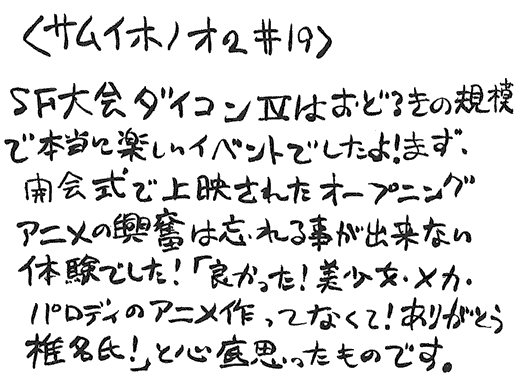 〈サムイホノオ2 #19〉
SF大会ダイコンⅣはおどろきの規模
で本当に楽しいイベントでしたよ!まず、
開会式で上映されたオープニング
アニメの興奮は忘れる事が出来ない
体験でした!「良かった!美少女・メカ・
パロディのアニメ作ってなくて!ありがとう
椎名氏!」と心底思ったものです。